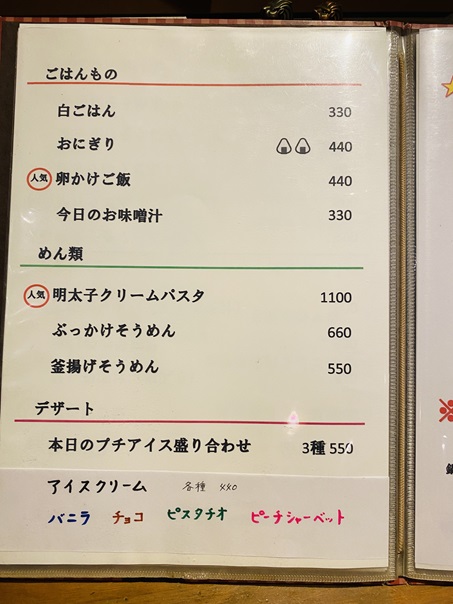 ごはんもの
白ごはん 330
おにぎり 440
人気 卵かけご飯 440
今日のお味噌汁 330
めん類
人気 明太子クリームパスタ 1100
ぶっかけそうめん 660
釜揚げそうめん 550
デザート
本日のプチアイス盛り合わせ 3種 550
アイスクリーム 各種 440
バニラ チョコ ピスタチオ ピーチシャーベット
※